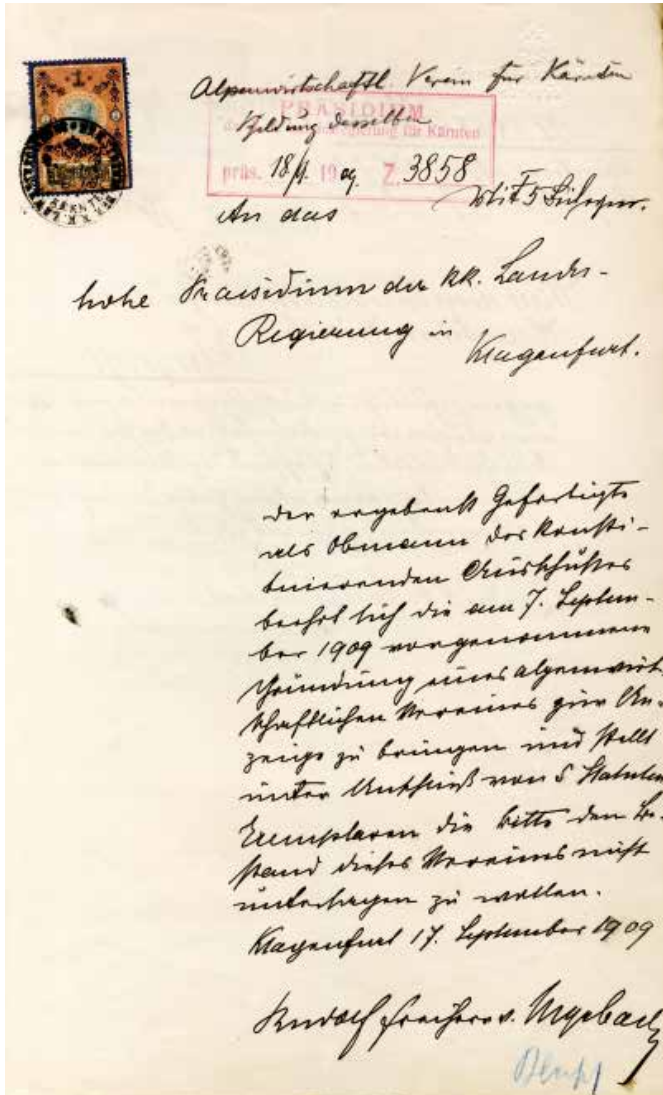 1
Alpenwirtschaftl. Verein für Kärnten
PRÄSIDIUM
Bildung desselben
der k.k. Landesregierung für Kärnten
präs. 18/9. 1909. Z. 3858
Mit 5 Beilagen.
An das
hohe Praesidium der kk. Landes-
Regierung in
Klagenfurt.
Der ergebenst Gefertigte
als Obmann des konsti-
tuierenden Ausschußes
beehrt sich die am 7. Septem-
ber 1909 vorgenommene
Gründung eines alpenwirt-
schaftlichen Vereines zur An-
zeige zu bringen und stellt
unter Anschluß von 5 Statuten
Exemplaren die Bitte den Be-
stand dieses Vereines nicht
untersagen zu wollen.
Klagenfurt 17. September 1909
Rudolf Freiherr v.